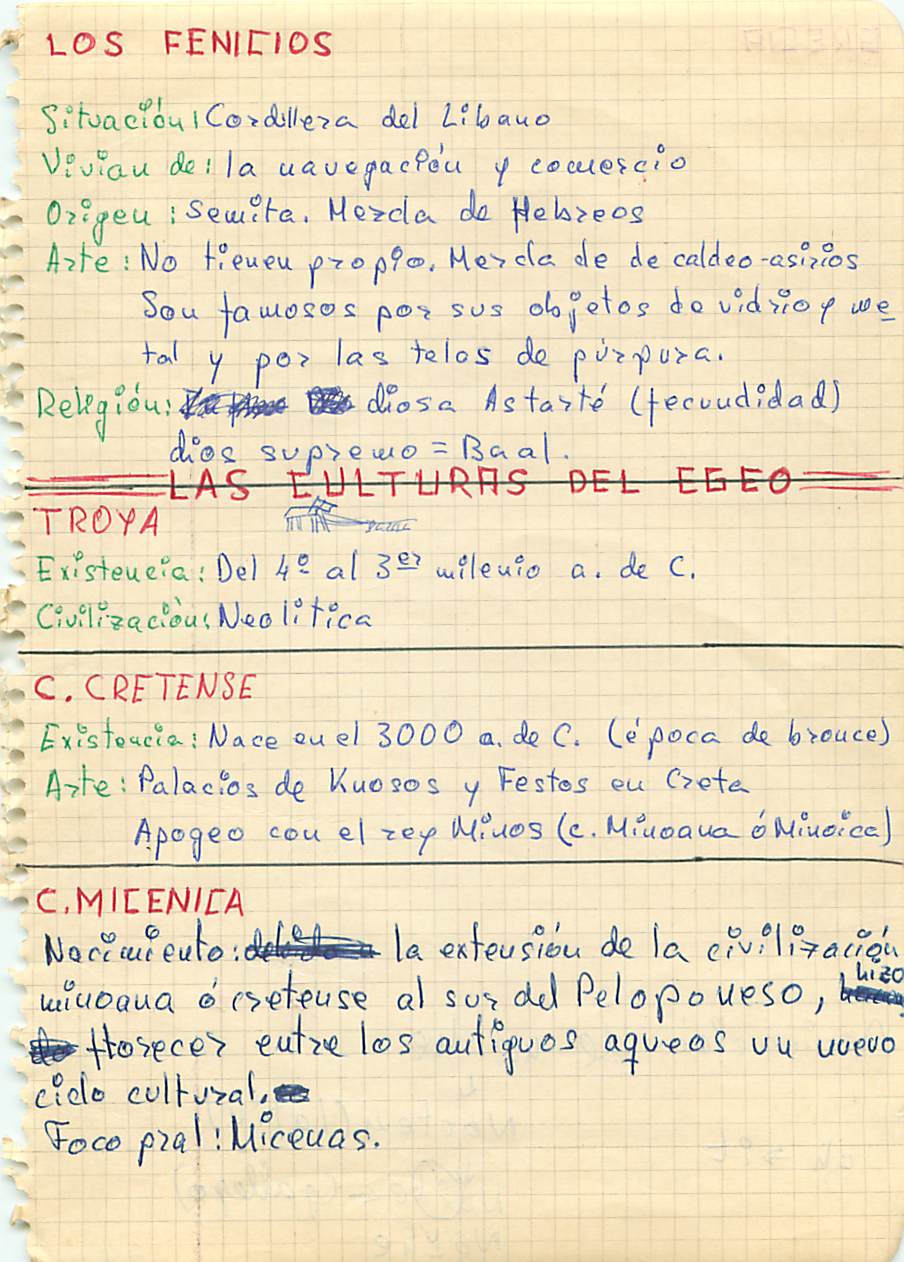 LOS FENICIOS
Situación: Cordillera del Líbano
Vivian de: la navegación y comercio
Origen: Semita. Mezcla de Hebreos
Arte: No tienen propio. Mezcla de de caldeo-asirios
Son famosos por sus objetos de vidrio y me
tal y por las telas de púrpura.
Religión: diosa Astarté (fecundidad)
dios supremo = Baal.
LAS CULTURAS DEL EGEO
TROYA
Existencia: Del 4º al 3er milenio a. de C.
Civilización: Neolítica
C. CRETENSE
Existencia: Nace en el 3000 a. de C. (época de bronce)
Arte: Palacios de Knosos y Festos en Creta
Apogeo con el rey Minos (c. Minoana ó Minoica)
C. MICENICA
Nacimiento: la extensión de la civilización
minoana ó cretense al sur del Peloponeso, hizo
florecer entre los antiguos aqueos un nuevo
ciclo cultural.
Foco pral: Micenas.